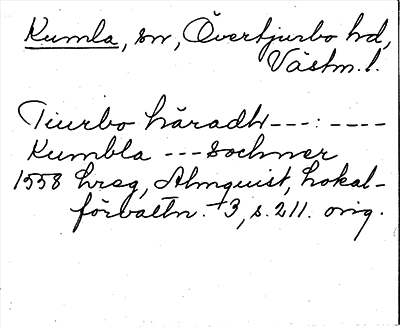 Kumla, sn, Övertjurbo hd,
Västm. l.
Tiurbo häradh ---:----
Kumbla --- sochner
1558 hreg, Almquist, Lokal-
förvaltn. 3, s. 211. orig.